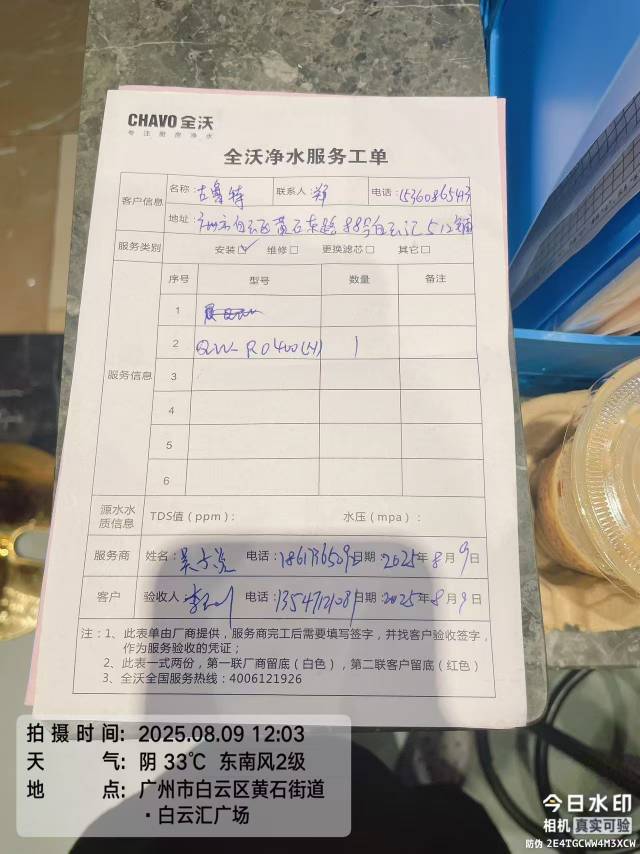 CHAVO 全沃
专注厨房净水
全沃净水服务工单
客户信息
名称: 古鲁特 联系人: 郑 电话: 15360865443
地址: 广州市白云区黄石东路88号白云汇512铺
服务类别 安装☑ 维修□ 更换滤芯□ 其它□
服务信息
序号 型号 数量 备注
1
2 QW-RO400(H) 1
3
4
5
6
源水水质信息 TDS值(ppm): 水压(mpa):
服务商 姓名: 电话: 日期 2025年8月9日
客户 验收人: 李 电话: 日期 2025年8月9日
注:1、此表单由厂商提供,服务商完工后需要填写签字,并找客户验收签字,
作为服务验收的凭证;
2、此表一式两份,第一联厂商留底(白色),第二联客户留底(红色)
3、全沃全国服务热线:4006121926
拍摄时间: 2025.08.09 12:03
天气: 阴 33℃ 东南风2级
地点: 广州市白云区黄石街道
·白云汇广场
今日水印
相机 真实可验
防伪 2E4TGCWW4M3XCW